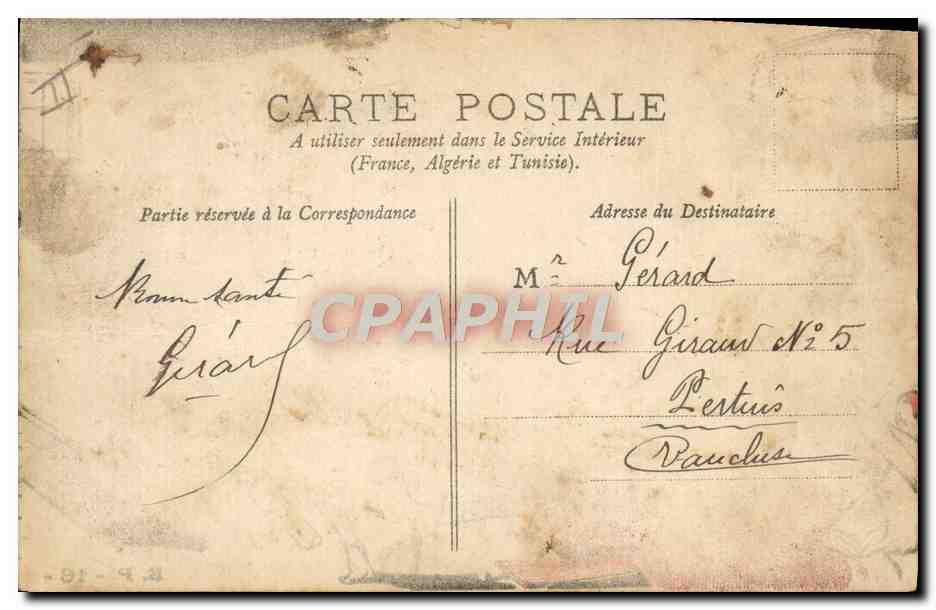 III
CARTE POSTALE
A utiliser seulement dans le Service Intérieur
(France, Algérie et Tunisie).
Partie réservée à la Correspondance
Adresse du Destinataire
Bonne santé
Gérard
Mr Gérard
Rue Giraud No 5
Pertuis
Vaucluse
CPAPHIL